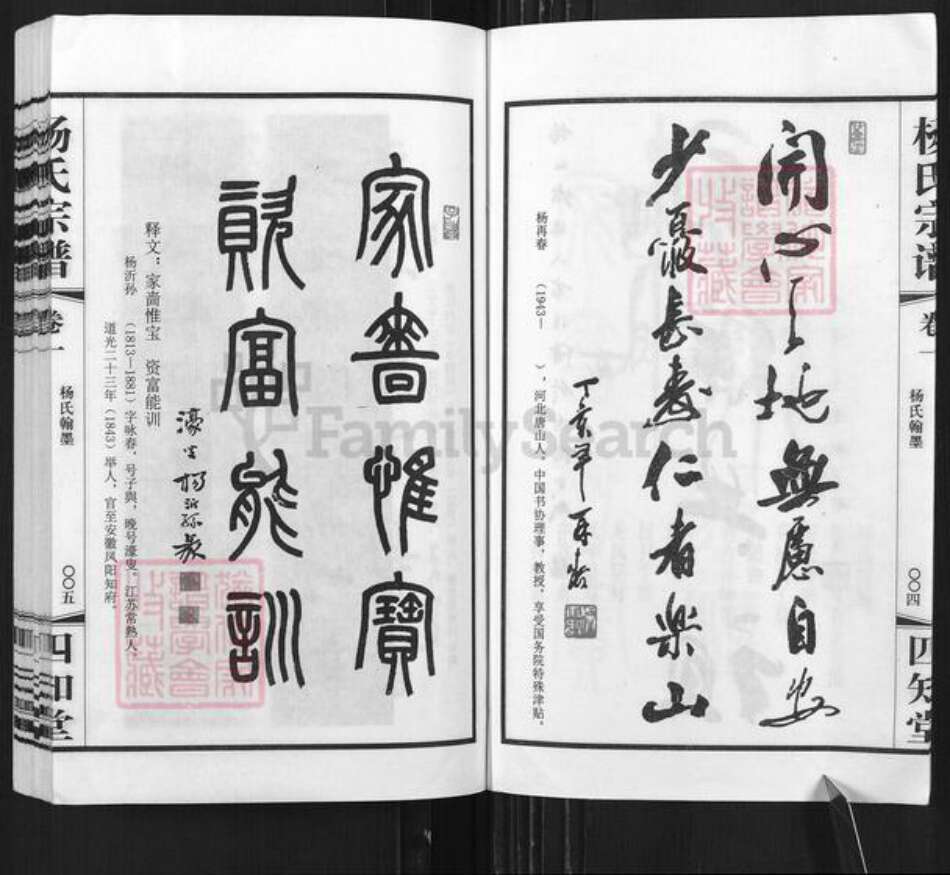 杨氏宗谱
卷一
杨氏翰墨
〇〇四
四知堂
開心之地無慮自安
少寢長壽仁者樂山
丁亥年 再春
杨再春 (1943— ),河北唐山人。中国书协理事、教授,享受国务院特殊津贴。
家啬惟寶
資富能訓
濠叟楊沂孫篆
释文:家啬惟宝 资富能训
杨沂孙 (1813—1881)字咏春,号子與,晚号濠叟。江苏常熟人,
道光二十三年(1843)举人,官至安徽凤阳知府。
杨氏宗谱
卷一
杨氏翰墨
〇〇五
四知堂
FamilySearch